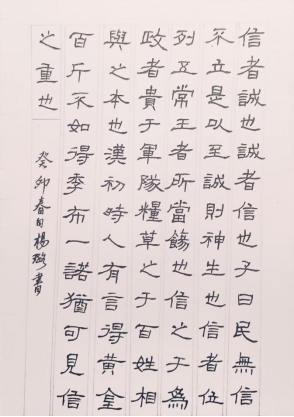 信者誠也誠者信也子曰民無信
不立是以至誠則神生也信者伍
列五常王者所當飭也信之于為
政者貴于軍隊糧草之于百姓相
與之本也漢初時人有言得黃金
百斤不如得季布一諾猶可見信
之重也
癸卯春日楊書